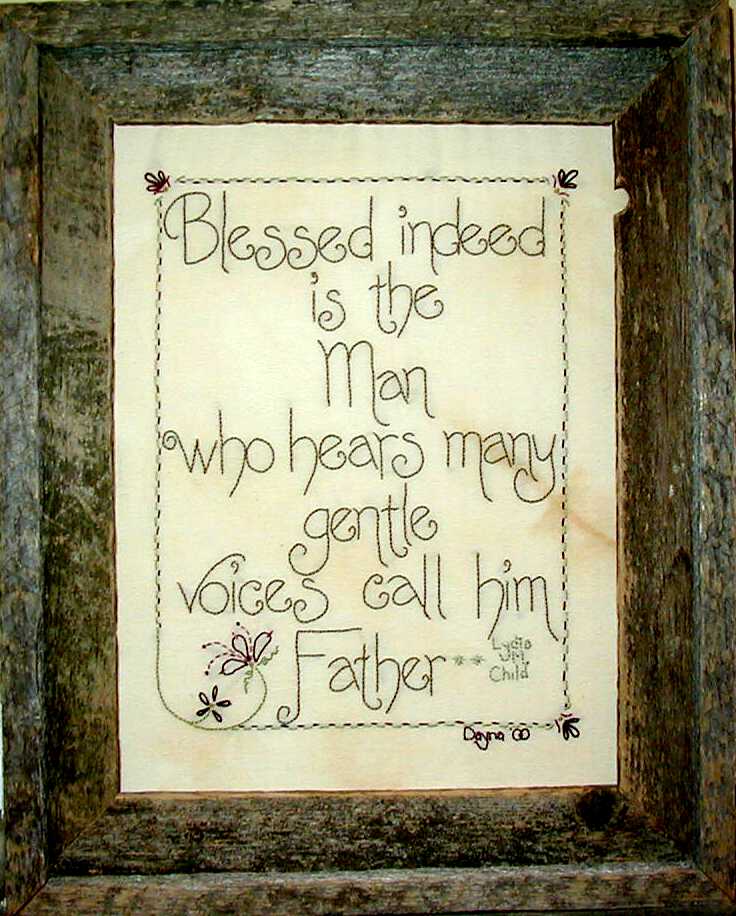 Blessed indeed
is the
Man
who hears many
gentle
voices call him
Father**
Lydia
M.
Child
Dayna 00